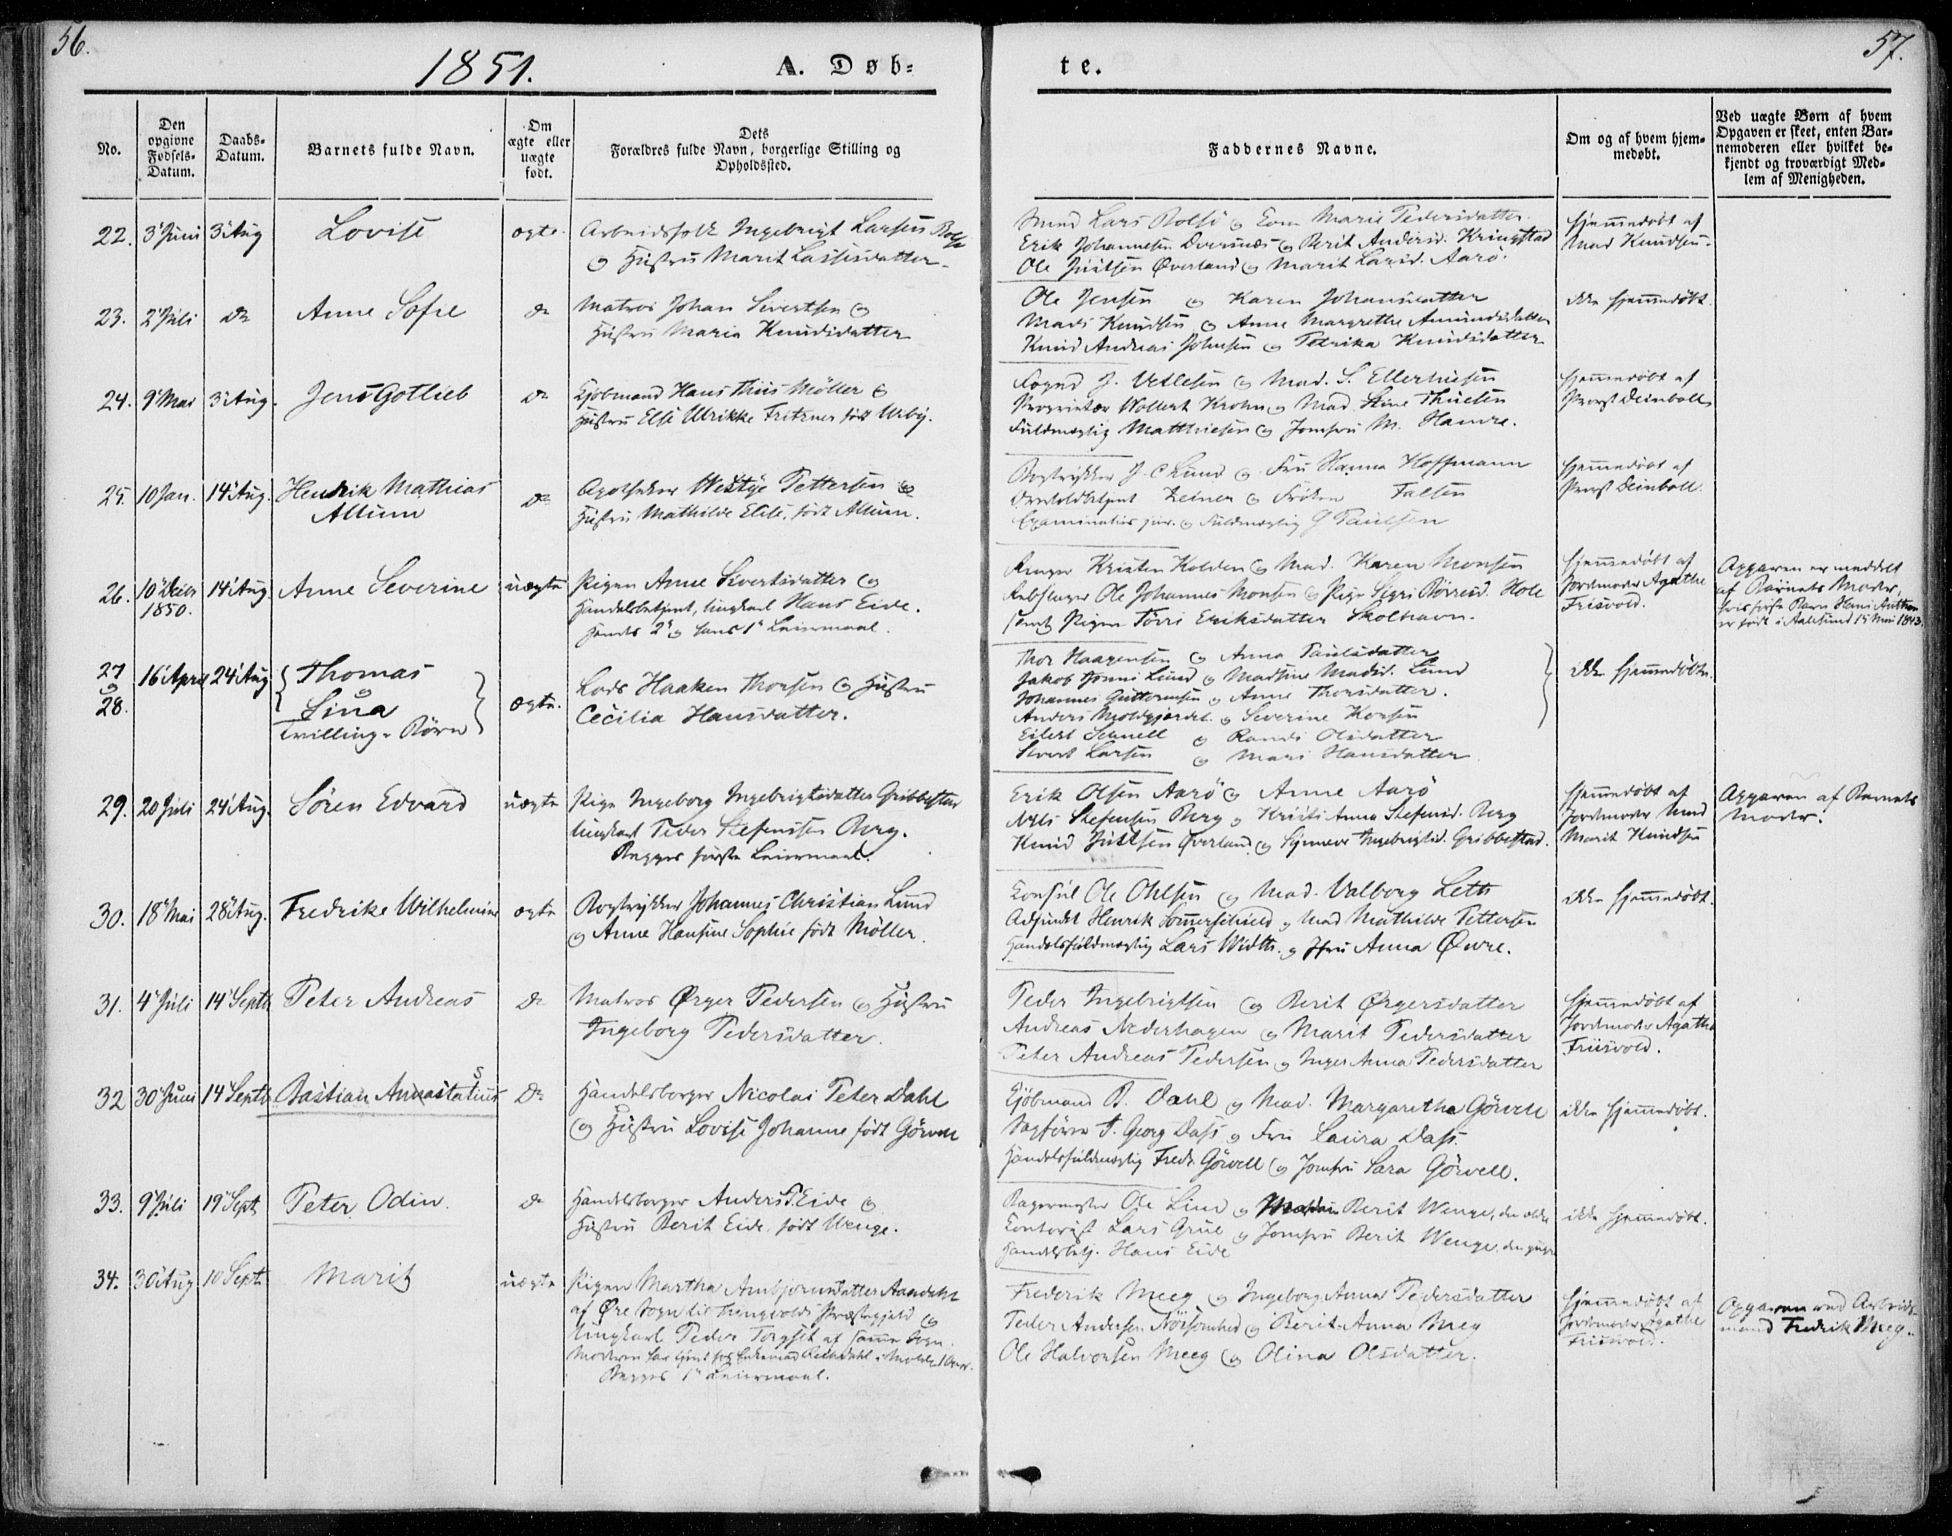 56.
57.
1851.
A. Døb-
te.
No.
Den opgivne Fødsels-Datum.
Daabs-Datum.
Barnets fulde Navn.
Om ægte eller uægte født.
Dets Forældres fulde Navn, borgerlige Stilling og Opholdssted.
Faddernes Navne.
Om og af hvem hjem-medøbt.
Ved uægte Børn af hvem Opgaven er skeet, enten Bar-nemoderen eller hvilket be-kjendt og troværdigt Med-lem af Menigheden.
22. 3 Juni 3 Aug Lovise ægte
Arbeidsfolk Ingebrigt Larsen
og Hustru Marit Lassesdatter
Lars Rolsö og Marie Pedersdatter
Erik Johannesen Oversnæs og Berit Andersd. Kringstad
Ole Justsen Øverland og Marit Larsd. Aarö.
hjemmedøbt af
Mad Knudsen
23. 2 Juli do Anne Sofie do
Matros Johan Sivertsen og
Hustru Maria Knudsdatter
Ole Jensen og Karen Johansdatter
Mads Knudsen og Anne Margrethe Amundsdatter
Knud Andreas Johnsen og Petrika Knudsdatter
ikke hjemmedøbt
24. 9 Mai 3 Aug. Jens Gotlieb do
Kjøbmand Hans Thiis Möller og
Hustru Else Ulrikke Fritzner født Urbÿ.
Fogud J. Vetlesen og Mad. S. Ellerhusen
Proprietær Wollert Krohn og Mad. Stine Thuesen
Fuldmægtig Matthiesen og Jomfru M. Hamre.
hjemmedøbt af
Provst Deinboll
25. 10 Jan. 14 Aug. Hendrik Mathias
Altum do
Apotheker Westye Pettersen og
Hustru Mathilde Elise, født Altum.
Bogtrykker J. C Lund og Fru Hanna Hoffmann
Zeiner og Frøken Falsen
Examinatus jur. og Fuldmægtig G Paulsen
hjemmedøbt af
Provst Deinboll
26. 10 Decbr 1850. 14 Aug Anne Severine uægte
Pigen Anne Sivertsdatter og
Handelsbetjent, Ungkarl Hans Eide.
Hendes 2 og hans 1 Leiermaal.
Kristen Kolden og Mad. Karen Monsen
Rebslager Ole Johannes Monsen og Pige Sigri Børresd. Hole
samt Pigen Eriksdatter Skolhavn.
hjemmedøbt af
Jordmoder Agathe
Frisvold.
Opgaven er meddelt
af Barnets Moder,
hvis første Barn Hans Anthon
er født i Aalesund 15 Mai 1843.
27 og 28. 16 April 24 Aug
Thomas
Lina
Tvilling-Børn ægte.
Lods Haaken Thorsen og Hustru
Cecilia Hansdatter.
Thor Haagensen og Anna Paulsdatter
Jakob Lund og Madsine Madsd. Lund
Johannes Guttormsen og Anne Thorsdatter.
Anders Moldgjerdet og Severine Korsen
Eilert Schnell og Randi Olsdatter
Sivert Larsen og Mari Hansdatter
ikke hjemmedøbte
29. 20 Juli 24 Aug. Sören Edvard uægte
Pige Ingeborg Ingebrigtsdatter Gribbestad
Ungkarl Peder Stefensen Berg.
Begges første Leiermaal.
Erik Olsen Aarö og Anne Aarö
Nils Stefensen Berg og Kristi Anna Stefensd. Berg
Knud Justsen Øverland og Ingebrigtsd. Gribbestad.
hjemmedøbt af
Jordmoder Mad
Marit Knudsen
Opgaven af Barnets
Moder.
30. 18 Mai 28 Aug. Fredrike Wilhelmine ægte
Bogtrykker Johannes Christian Lund
og Anne Hansine Sophie født Möller.
Consul Ole Ohlsen og Mad. Valborg Leth
Adjunkt Henrik Sommerschield og Mad Mathilde Pettersen
Handelsfuldmægtig Lars Width. og Jfru Anna Øwre.
ikke hjemmedøbt.
31. 4 Juli 14 Septb Peter Andreas do
Matros Ørger Pedersen og Hustru
Ingeborg Pedersdatter.
Peder Ingebrigtsen og Berit Ørgersdatter
Andreas Nederhagen og Marit Pedersdatter
Peter Andreas Pedersen og Inger Anna Pedersdatter
hjemmedøbt af
Jordmoder Agathe
Friisvold.
32 30 Juni 14 Septb Bastian Annastatius do
Handelsborger Nicolai Peter Dahl
og Hustru Lovise Johanne født Görvell
Kjöbmand B. Dahl og Mad. Margaretha Görvell
Sagfører A. Georg Dass og Fru Laura Dass.
Handelsfuldmægtig Fredr. Görvell og Jomfru Sara Görvell.
ikke hjemmedøbt.
33. 9 Juli 19 Sept Peter Odin do
Handelsborger Anders Eide og
Hustru Berit Eide født Wenge.
Bagermester Ole Lund og Madam Berit Wenge, den ældre
Contorist Lars Grue og Jomfru Berit Wenge, den yngre
Handelsbetj. Hans Eide
ikke hjemmedøbt.
34. 30 Aug 10 Sept. Marit uægte
Pigen Martha Arnbjørnsdatter Aandahl
af Øre Sogn til Thingvolds Præstegjeld og
Ungkarl Peder Torgset af samme Sogn.
Moderen har tjent hos i Molde 1 Aar.
Begges 1 Leiermaal.
Frederik Meeg og Ingeborg Anna Pedersdatter
Peder Andersen Nöisomhed og Berit-Anna Meeg
Ole Halvorsen Meeg og Olina Olsdatter.
hjemmedøbt af
Jordmoder Agathe
Friisvold.
Opgaven ved Arbeids-
mand Fredrik Meeg.